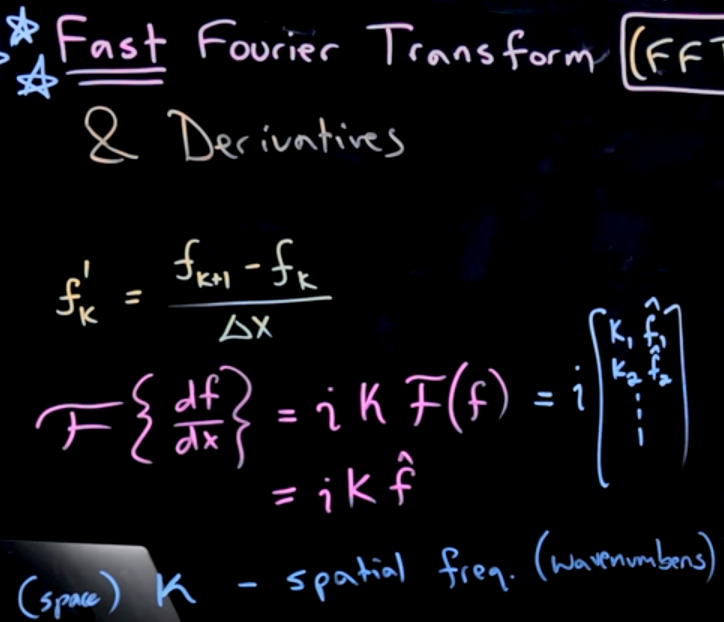 Fast Fourier Transform (FFT
& Derivatives
f'_k = (f_{k+1} - f_k) / Δx
F{df/dx} = i k F(f) = i [k_1 f̂_1
k_2 f̂_2
⋮]
= i k f̂
(space) k - spatial freq. (wavenumbers)